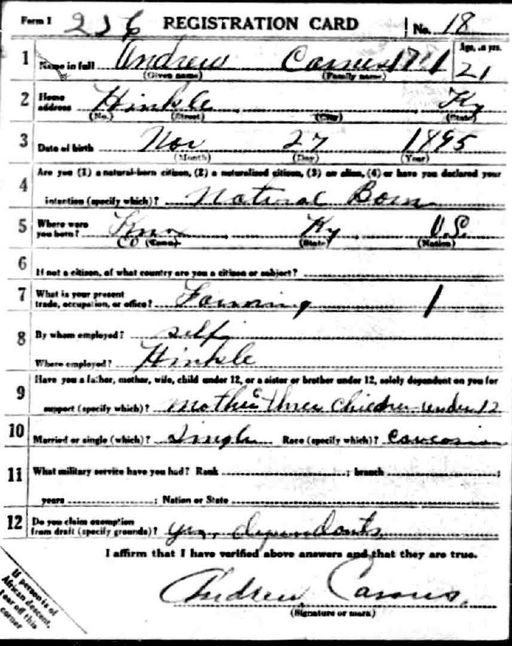 Form 1 236 REGISTRATION CARD No. 18
1 Name in full Andrew Age, in yrs.
(Given name) (Family name) 21
2 Home address Hinkle Ky
(No.) (Street) (City) (State)
3 Date of birth Nov 27 1895
(Month) (Day) (Year)
4 Are you (1) a natural-born citizen, (2) a naturalized citizen, (3) an alien, (4) or have you declared your
intention (specify which)? Natural Born
5 Where were you born? Knox Ky U.S.
CO (Town) (State) (Nation)
6 If not a citizen, of what country are you a citizen or subject?
7 What is your present trade, occupation, or office? Farming 1
8 By whom employed? self
Where employed? Hinkle
9 Have you a father, mother, wife, child under 12, or a sister or brother under 12, solely dependent on you for
support (specify which)? mother three children under 12
10 Married or single (which)? Single Race (specify which)? caucasian
11 What military service have you had? Rank ; branch ;
years ; Nation or State
12 Do you claim exemption from draft (specify grounds)? yes, dependants
I affirm that I have verified above answers and that they are true.
Andrew
(Signature or mark)
If person is of
African descent,
tear off this
corner